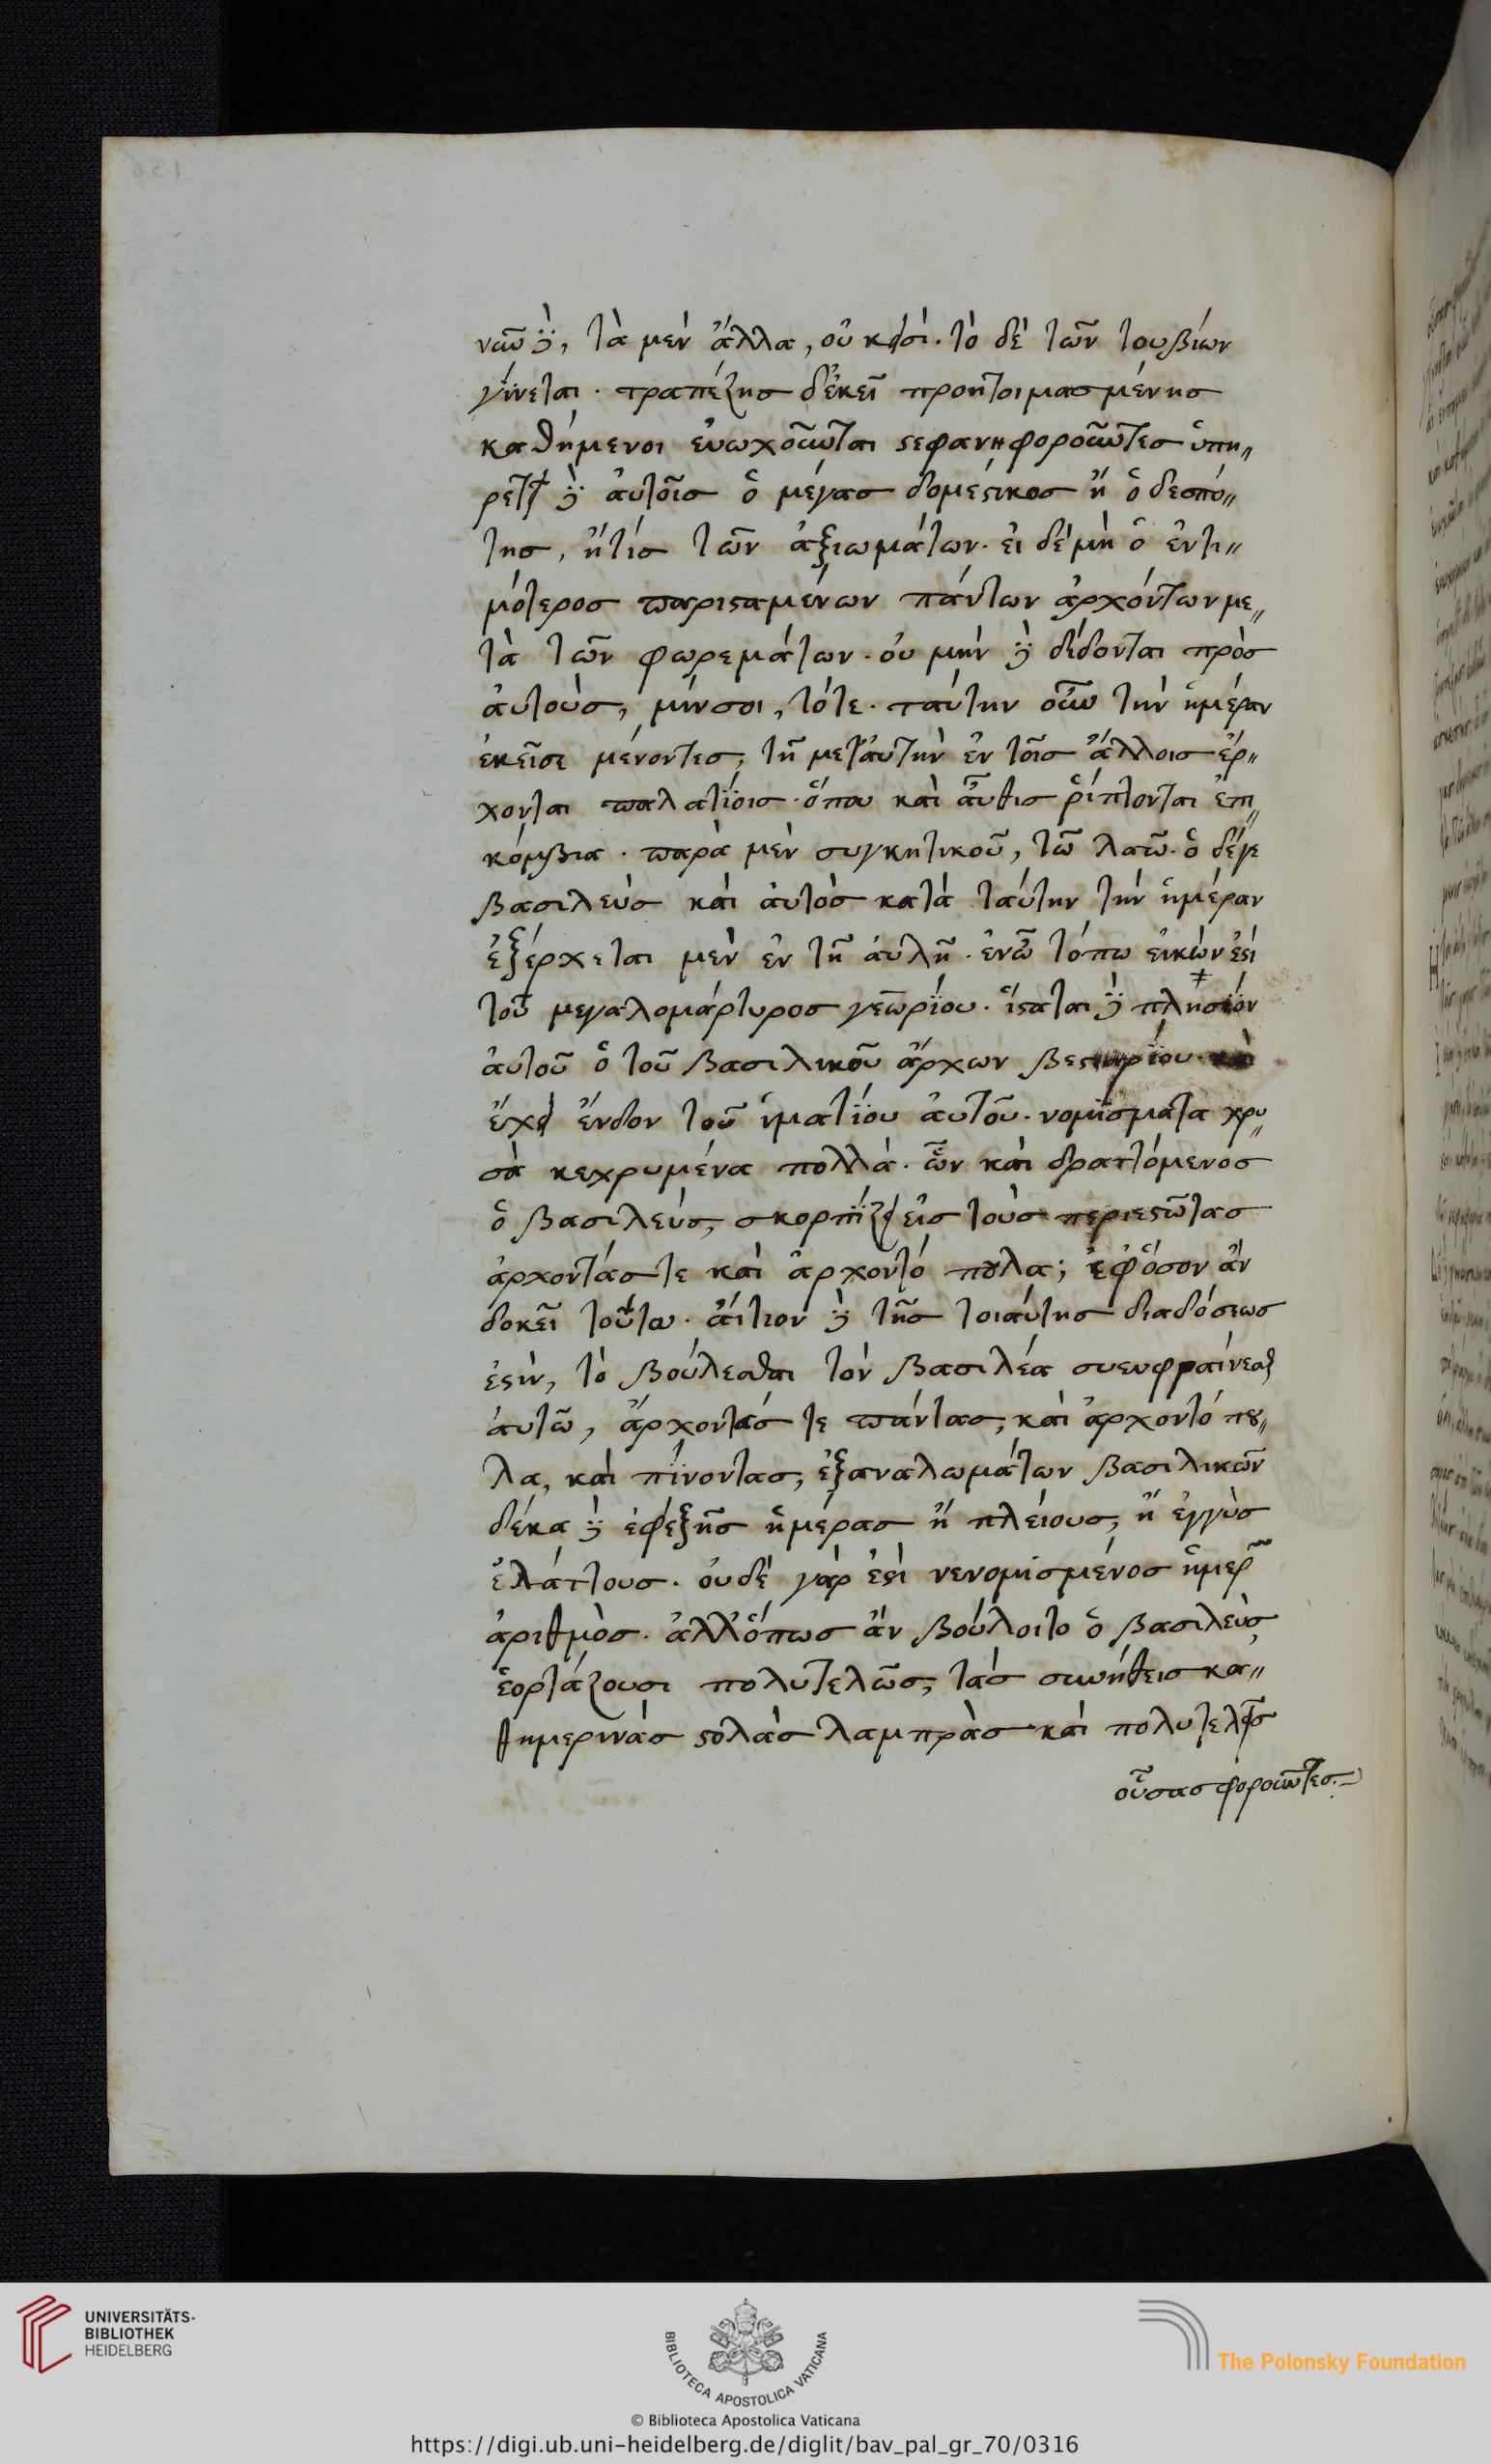 νῶν δὲ, τὰ μὲν ἄλλα, οὐκ εἰσί. τὸ δὲ τῶν τουβίων
γίνεται. τραπέζησ δ' ἐκεῖ προητοιμασμένησ
καθήμενοι ἐυωχοῦνται στεφανηφοροῦντεσ ὑπη„
ρετεῖ δὲ ἀυτοῖσ ὁ μέγασ δομέστικοσ ἢ ὁ δεσπό„
τησ, ἤ τίσ τῶν ἀξιωμάτων. ἐι δὲ μὴ ὁ ἐντι„
μότεροσ παρισταμένων πάντων ἀρχόντων με„
τὰ τῶν φωρεμάτων. ὀυ μὴν δὲ δίδονται πρὸσ
ἀυτοὺσ, μίνσοι, τότε. ταύτην οὖν τὴν ἡμέραν
ἐκεῖσε μένοντεσ, τῆ μετ' ἀυτὴν ἐν τοῖσ ἄλλοισ ἔρ„
χονται παλατίοισ. ὅπου καὶ ἆυθισ ῥίπτονται ἐπι„
κόμβια. παρὰ μὲν συγκητικοῦ, τῶ λαῶ. ὁ δέγε
βασιλεὺσ καὶ ἀυτὸσ κατὰ ταύτην τὴν ἡμέραν
ἐξέρχεται μὲν ἐν τῆ ἀυλῆ. ἐν ὧ τόπω εἰκὼν ἐστὶ
τοῦ μεγαλομάρτυροσ γεωρίου. ἵσταται δὲ πλησίον
ἀυτοῦ ὁ τοῦ βασιλικοῦ ἄρχων βεστιαρίου. καὶ
ἔχει ἔνδον τοῦ ἱματίου ἀυτοῦ. νομίσματα χρυ„
σὰ κεχρυμένα πολλὰ. ὧν καὶ δραττόμενοσ
ὁ βασιλεὺσ, σκορπίζει εἰσ τοὺσ περιεστῶτασ
ἀρχοντάσ τε καὶ ἀρχοντό πουλα, ἐφ' ὅσον ἂν
δοκεῖ τούτω. ἄιτιον δὲ τῆσ τοιαύτησ διαδόσεωσ
ἐστὶν, τὸ βούλεσθαι τὸν βασιλέα συευφραίνεσθαι
ἀυτῶ, ἄρχοντάσ τε πάντασ, καὶ ἀρχοντό που„
λα, καὶ πίνοντασ, ἐξ αναλωμάτων βασιλικῶν
δέκα δὲ ἐφέξῆσ ἡμέρασ ἢ πλείουσ, ἢ ἐγγὺσ
ἐλάττουσ. ὀυδὲ γὰρ ἐστὶ νενομισμένοσ ἡμερῶν
ἀριθμὸσ. ἀλλ' ὅπωσ ἂν βούλοιτο ὁ βασιλεὺσ
ἑορτάζουσι πολυτελῶσ, τὰσ συνήθεισ κα„
θημερινὰσ στολὰσ λαμπρὰσ καὶ πολυτελεῖσ
οὖσασ φοροῦντεσ.
UNIVERSITÄTS-
BIBLIOTHEK
HEIDELBERG
BIBLIOTECA APOSTOLICA VATICANA
The Polonsky Foundation
© Biblioteca Apostolica Vaticana
https://digi.ub.uni-heidelberg.de/diglit/bav_pal_gr_70/0316